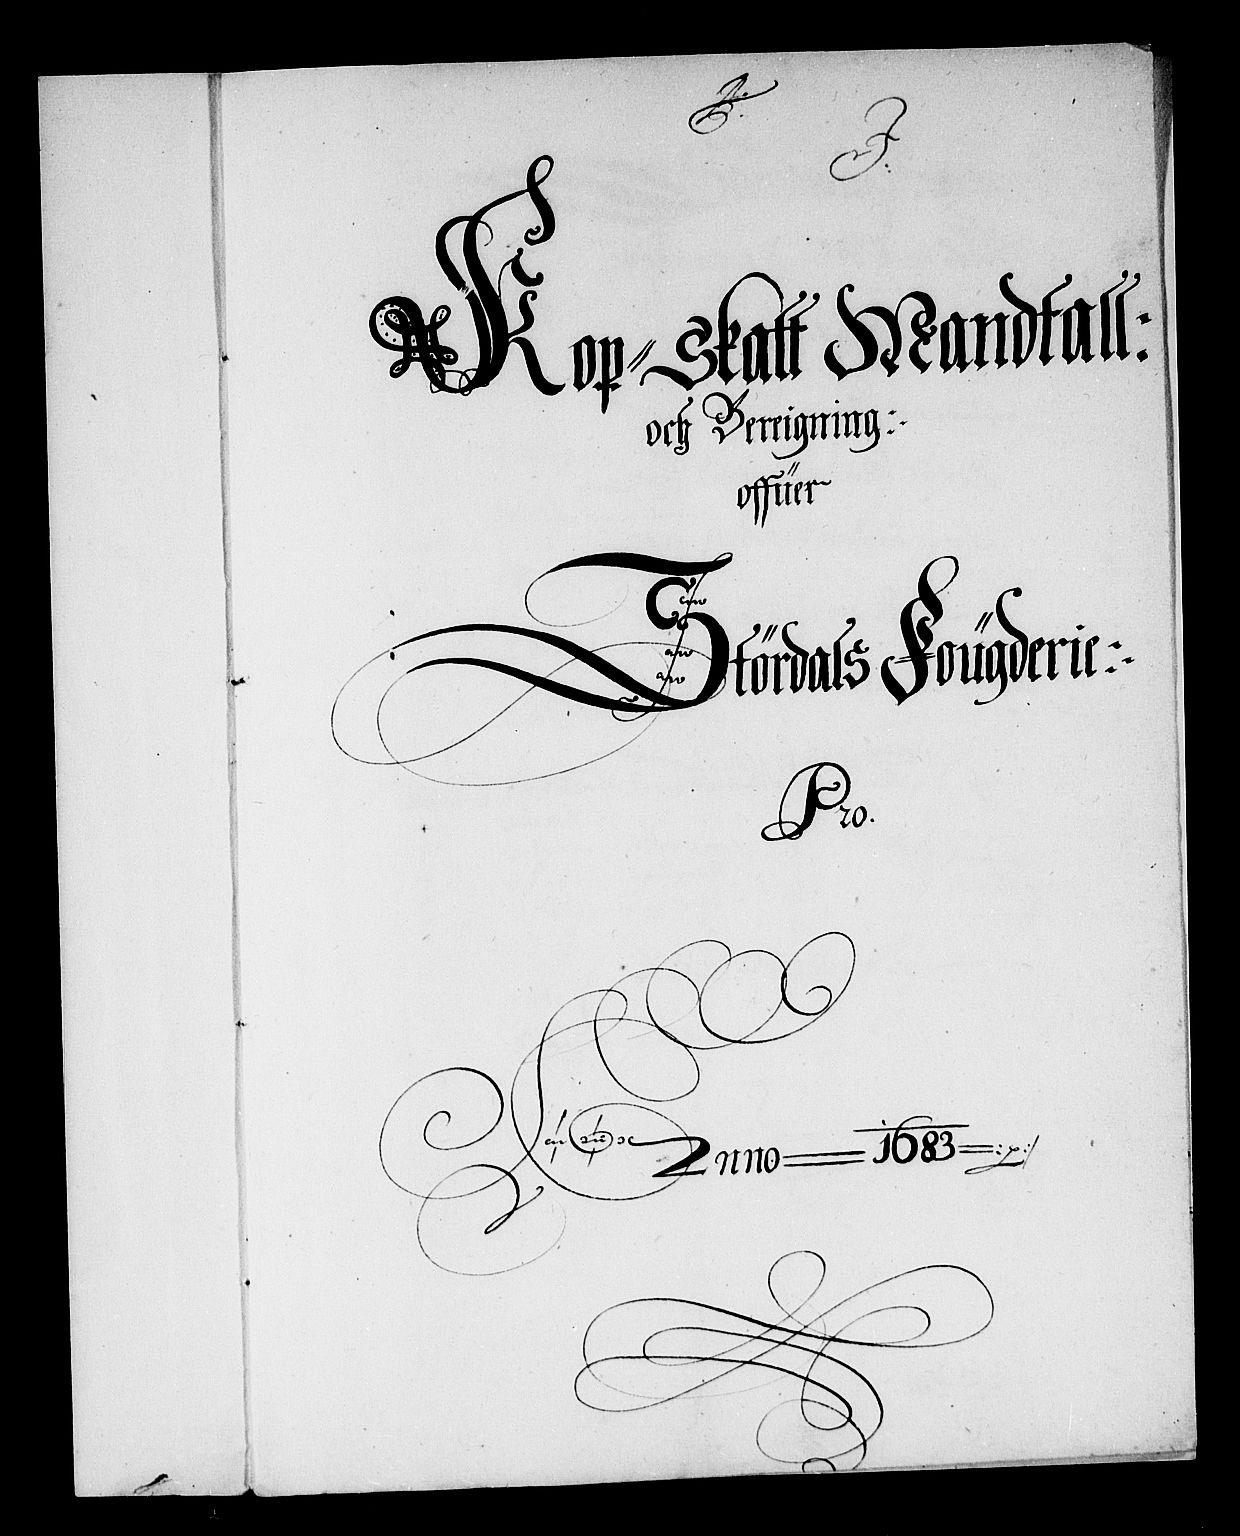 J.
Kop-skatt Mandtall:
och Bereigning:
offüer
Stördals Fougderie:
Pro.
Anno 1683